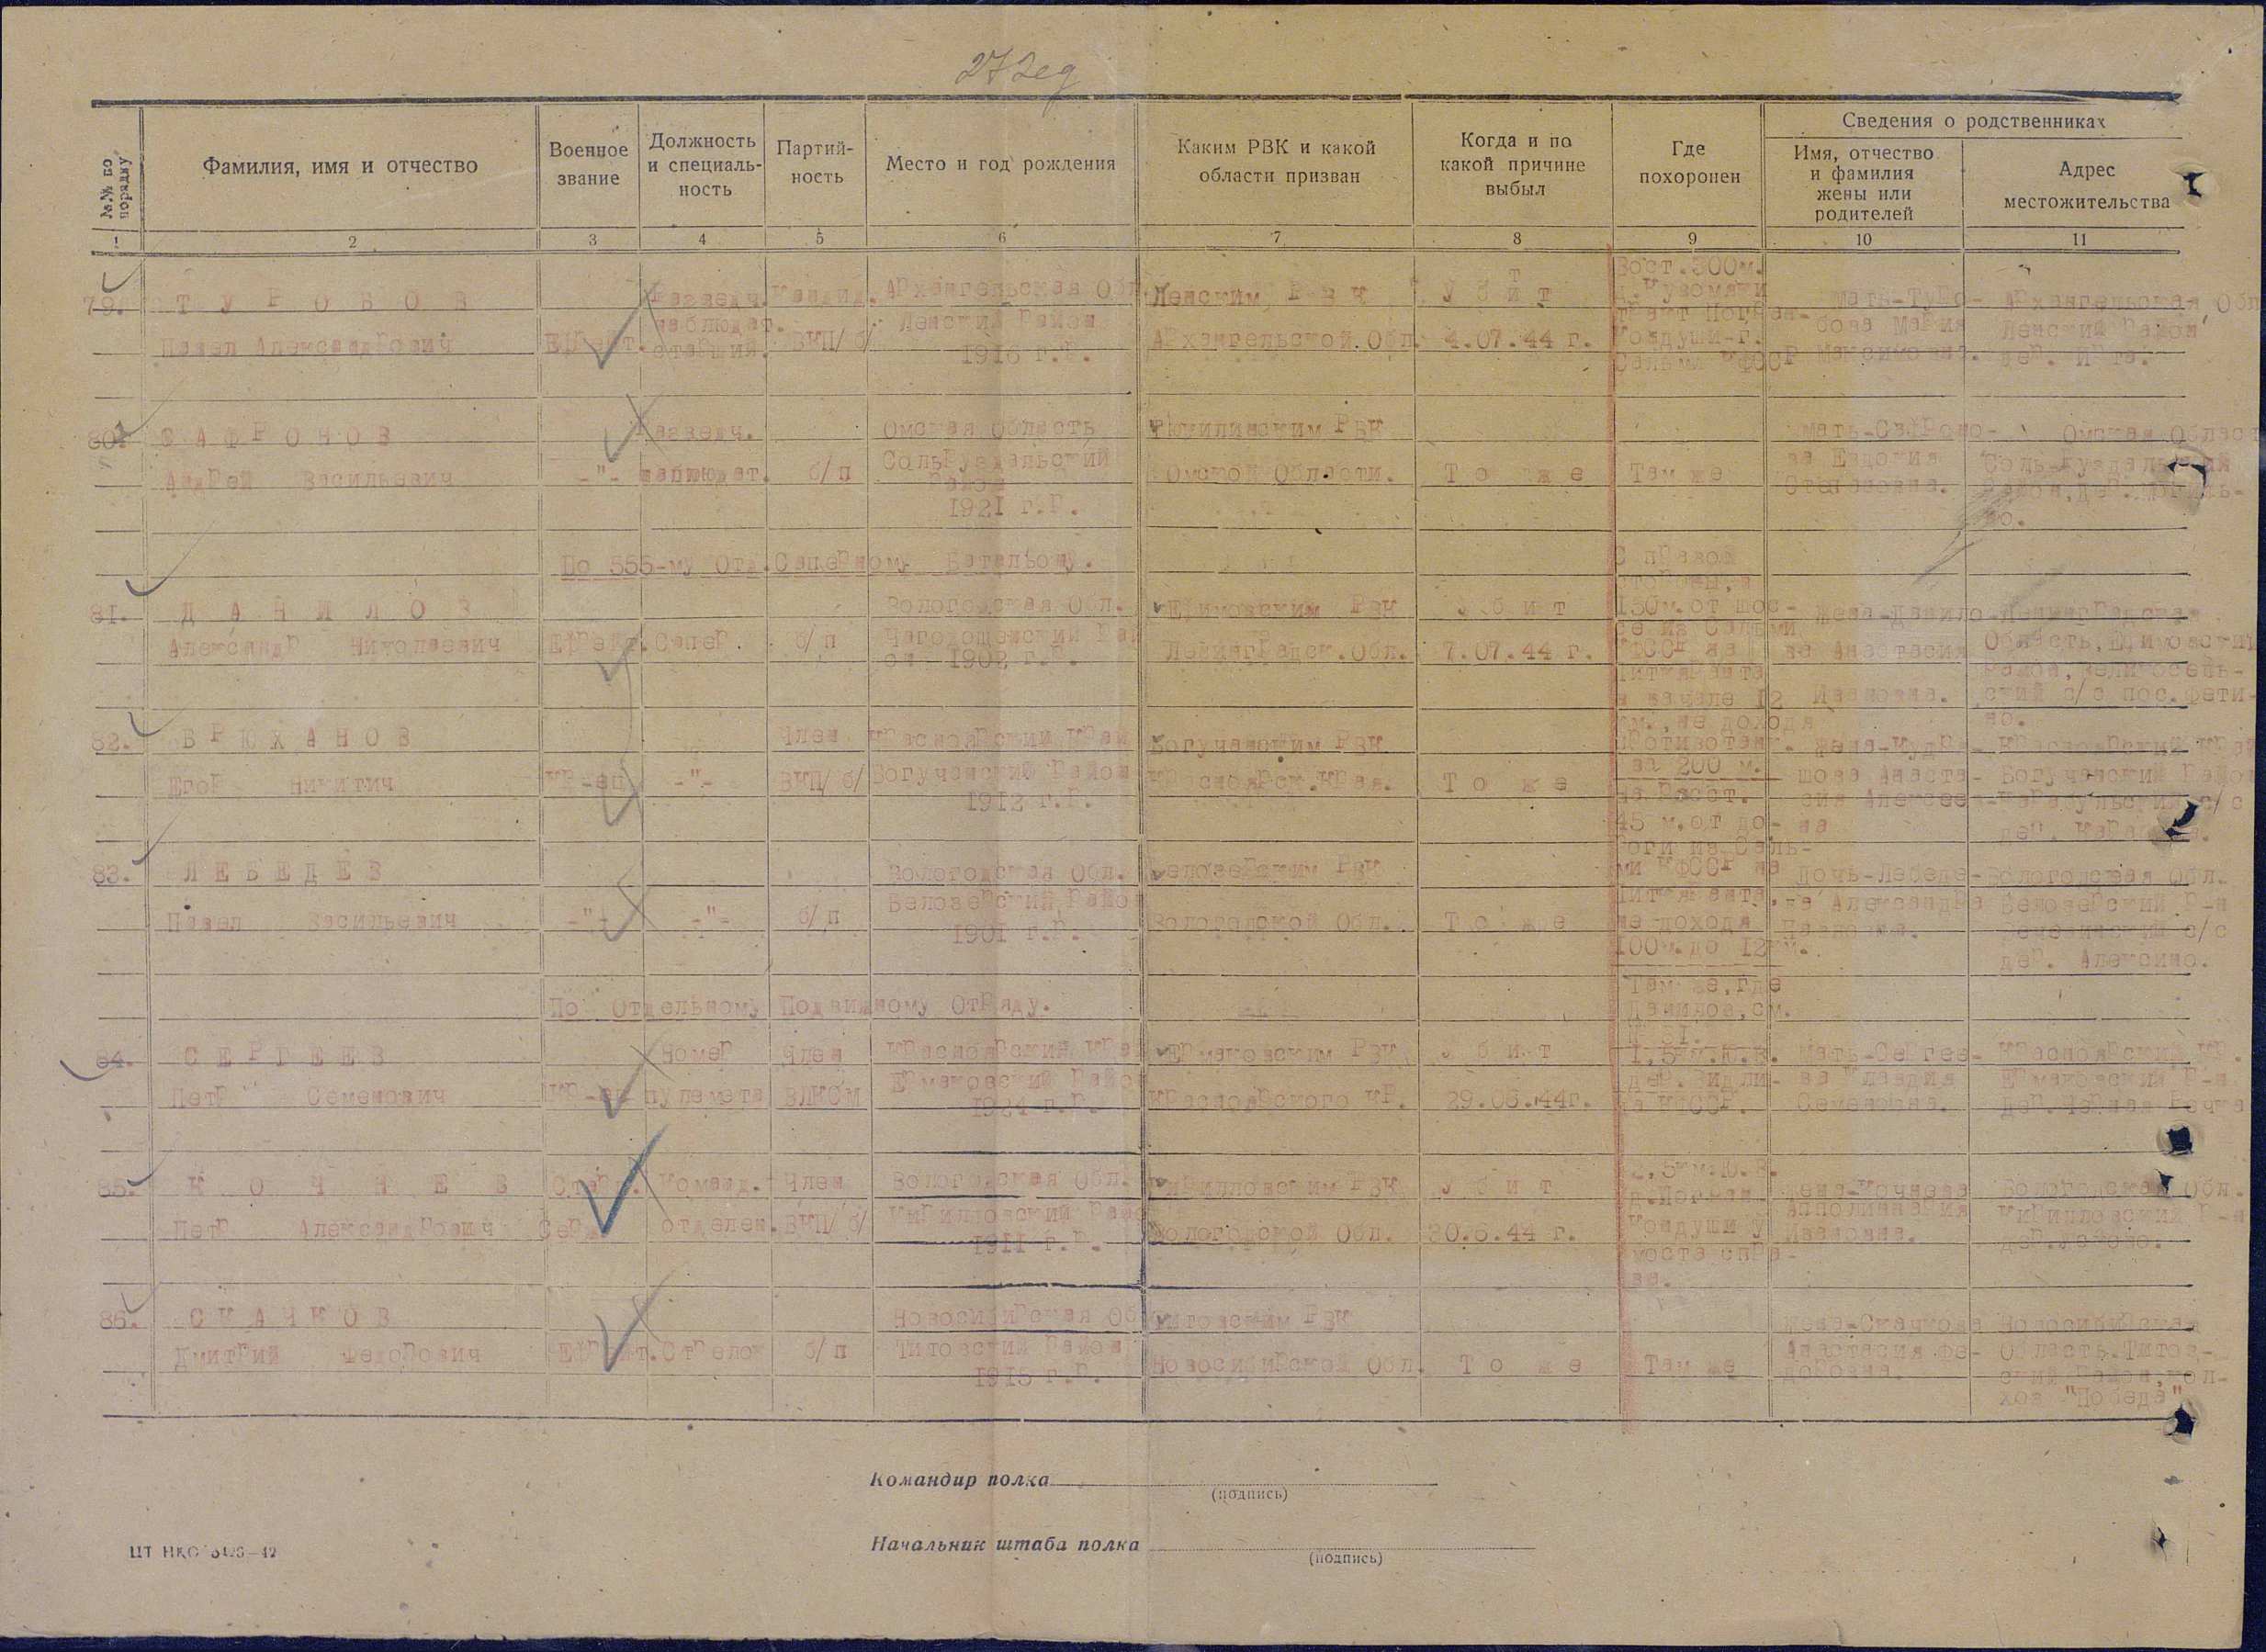 №№ по порядку
Фамилия, имя и отчество
Военное звание
Должность и специаль-ность
Партий-ность
Место и год рождения
Каким РВК и какой области призван
Когда и по какой причине выбыл
Где похоронен
Сведения о родственниках
Имя, отчество и фамилия жены или родителей
Адрес местожительства
1 2 3 4 5 6 7 8 9 10 11
79. ТУРОБОВ
Павел Александрович
Ефрейт.
Разведч. наблюдат. старший.
Кандид. ВКП/б/
Архангельская Обл
Ленский Район
1916 г.р.
Ленским РВК
Архангельской Обл.
Убит
4.07.44 г.
Вост. 300м.
Мать-Туро-
бова Мария
Максимовна.
Архангельская Обл
Ленский Район
дер. Ирта.
80. САФРОНОВ
Андрей Васильевич
-"-
Разведч. наблюдат.
б/п
Омская Область
Район
1921 г.р.
РВК
Омской Области.
То же
Там же
Мать-Сафроно-
ва Евдокия
Степановна.
Омская Област
По 555-му Отд. Саперному Батальону.
81. ДАНИЛОВ
Александр Николаевич
Ефрейт.
Сапер.
б/п
Вологодская Обл.
Чагодощенский Рай
он 1902 г.р.
Ефимовским РВК
Ленинградск. Обл.
Убит
7.07.44 г.
С правой
стороны, в
150м. от шос-
се из Сальми
КФССР на
Питкяранта
в начале 12
км., не доходя
противотанк.
на 200 м.
на расст.
45 м. от до-
роги из Саль-
ми КФССР на
Питкяранта,
не доходя
100м. до 12км.
Жена-Данило-
ва Анастасия
Ивановна.
Ленинградская
Область, Ефимовский
82. БРЮХАНОВ
Егор Никитич
Кр-ец
-"-
Член ВКП/б/
Красноярский Край
Богучанский Район
1912 г.р.
Богучанским РВК
Красноярск. Края.
То же
Жена-Кудря-
шова Анаста-
сия Алексеев-
на
Красноярский Край
Богучанский Район
83. ЛЕБЕДЕВ
Павел Васильевич
-"-
-"-
б/п
Вологодская Обл.
Белозерский Район
1901 г.р.
Белозерским РВК
Вологодской Обл.
То же
Дочь-Лебеде-
ва Александра
Павловна.
Вологодская Обл.
Белозерский Р-н
дер. Алексино.
По Отдельному Подвижному Отряду.
Там же, где
Данилов, см.
84. СЕРГЕЕВ
Петр Семенович
Кр-ец
Номер пулемета
Член ВЛКСМ
Красноярский Край
Ермаковский Район
1924 г.р.
Ермаковским РВК
Красноярского Кр.
Убит
29.06.44г.
1,5 км. Ю.В.
дер. Видли-
ца КФССР.
Мать-Сергее-
ва Клавдия
Семеновна.
Красноярский Кр.
Ермаковский Р-н
дер. Черная Речка
85. КОЧНЕВ
Петр Александрович
Старш. Серж.
Команд. отделен.
Член ВКП/б/
Вологодская Обл.
Кирилловский Район
1911 г.р.
Кирилловским РВК
Вологодской Обл.
Убит
30.6.44 г.
2,5 км. Ю.В.
д. Погран.
Кондуши у
моста спра-
ва.
Жена-Кочнева
Апполинария
Ивановна.
Вологодская Обл.
Кирилловский Р-н
86. СКАЧКОВ
Дмитрий Федорович
Ефрейт.
Стрелок
б/п
Новосибирская Об
Титовский Район
1915 г.р.
Титовским РВК
Новосибирской Обл.
То же
Там же
Жена-Скачкова
Анастасия Фе-
доровна.
Новосибирская
Область, Титов-
ский Район, кол-
хоз "Победа"
Командир полка
(подпись)
Начальник штаба полка
(подпись)